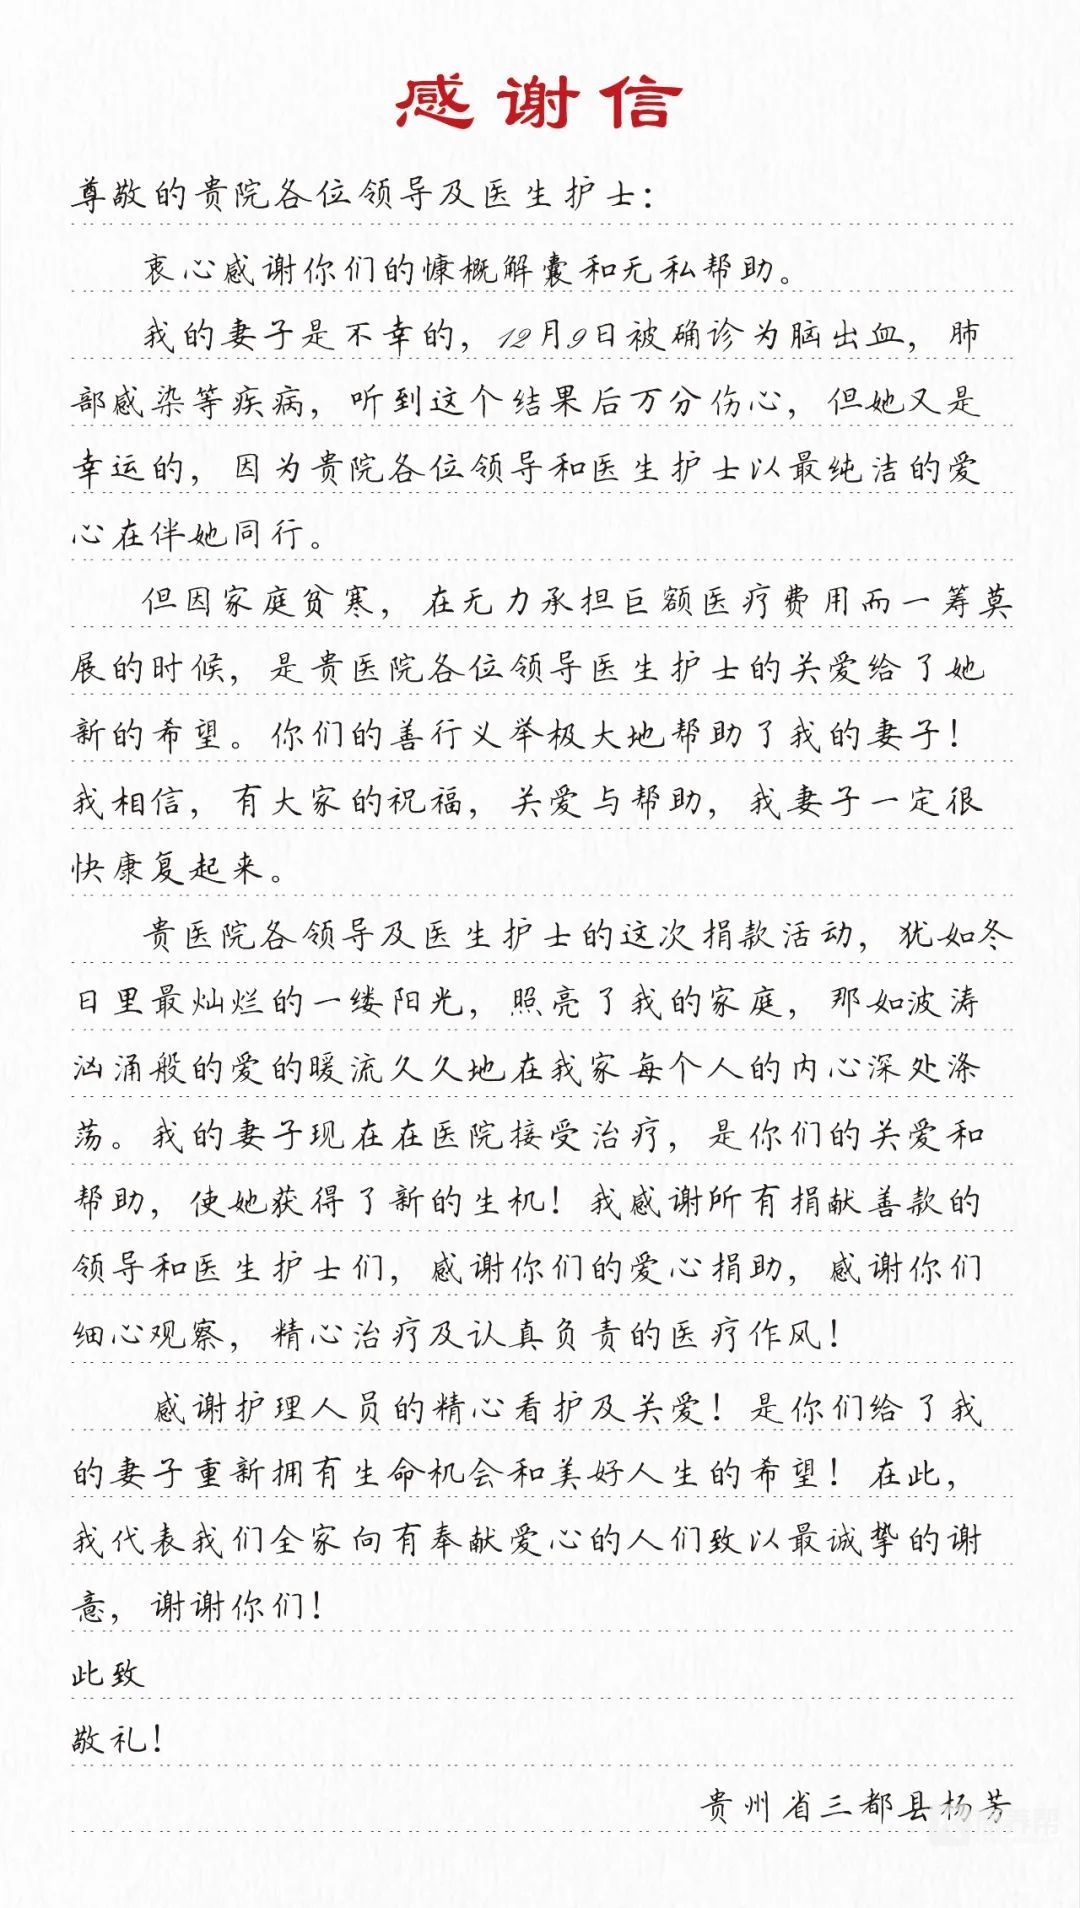 感谢信
尊敬的贵院各位领导及医生护士：
衷心感谢你们的慷概解囊和无私帮助。
我的妻子是不幸的，12月9日被确诊为脑出血，肺
部感染等疾病，听到这个结果后万分伤心，但她又是
幸运的，因为贵院各位领导和医生护士以最纯洁的爱
心在伴她同行。
但因家庭贫寒，在无力承担巨额医疗费用而一筹莫
展的时候，是贵医院各位领导医生护士的关爱给了她
新的希望。你们的善行义举极大地帮助了我的妻子！
我相信，有大家的祝福，关爱与帮助，我妻子一定很
快康复起来。
贵医院各领导及医生护士的这次捐款活动，犹如冬
日里最灿烂的一缕阳光，照亮了我的家庭，那如波涛
汹涌般的爱的暖流久久地在我家每个人的内心深处涤
荡。我的妻子现在在医院接受治疗，是你们的关爱和
帮助，使她获得了新的生机！我感谢所有捐献善款的
领导和医生护士们，感谢你们的爱心捐助，感谢你们
细心观察，精心治疗及认真负责的医疗作风！
感谢护理人员的精心看护及关爱！是你们给了我
的妻子重新拥有生命机会和美好人生的希望！在此，
我代表我们全家向有奉献爱心的人们致以最诚挚的谢
意，谢谢你们！
此致
敬礼！
贵州省三都县杨芳